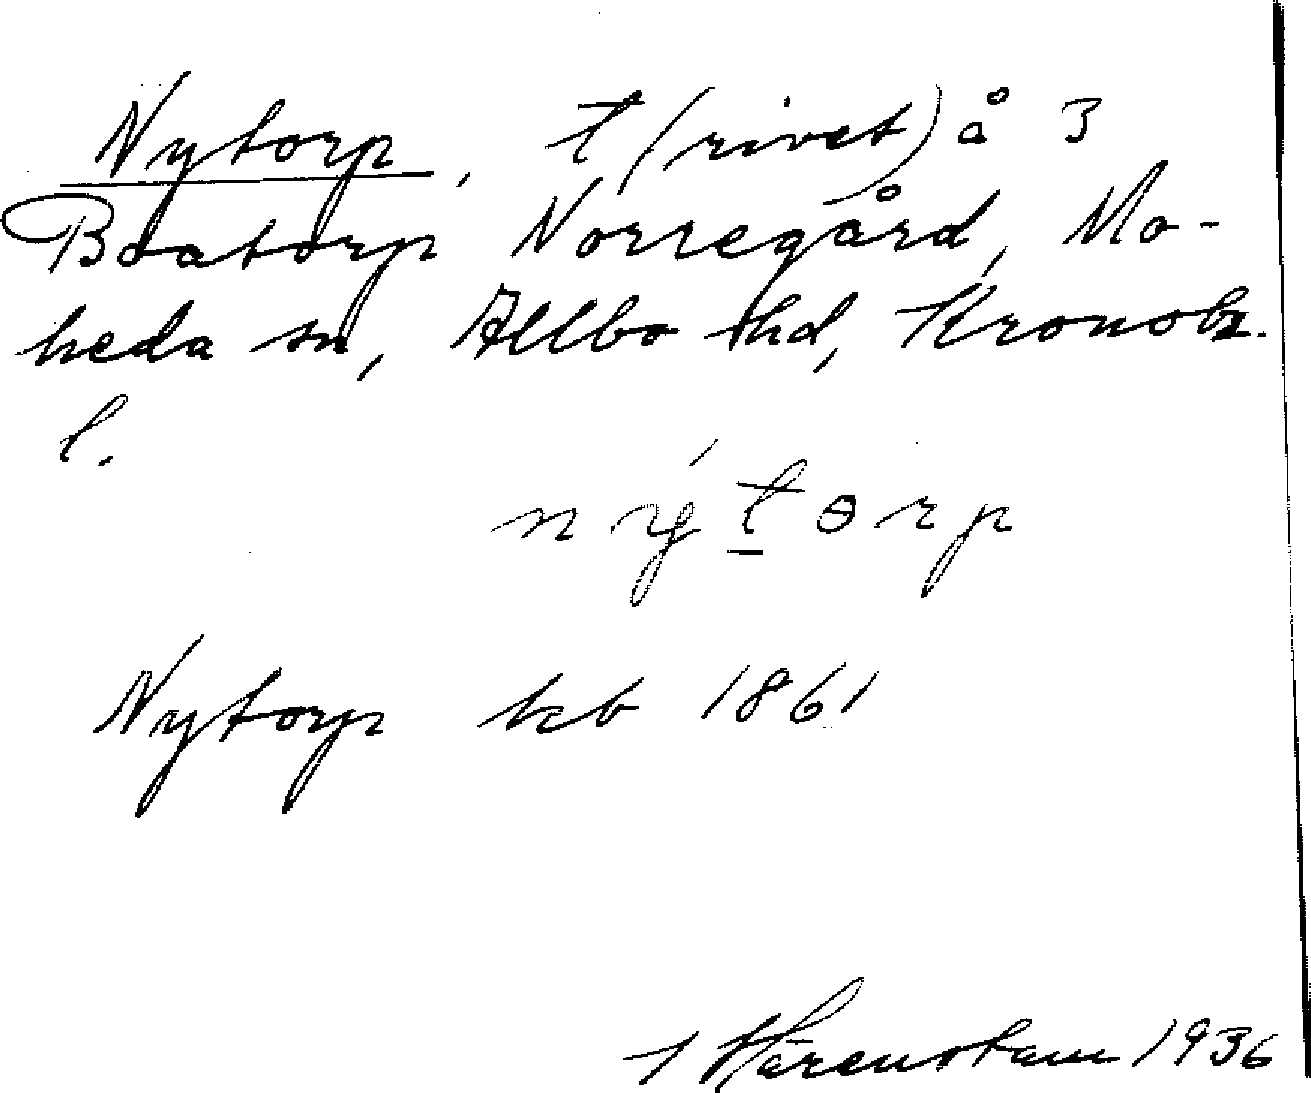 Nytorp, t (rivet) å 3
Boatorp Norregård, Mo-
heda sn, Allbo hd, Kronob.
l.
nýtɵrp
Nytorp kb 1861
Härenstam 1936